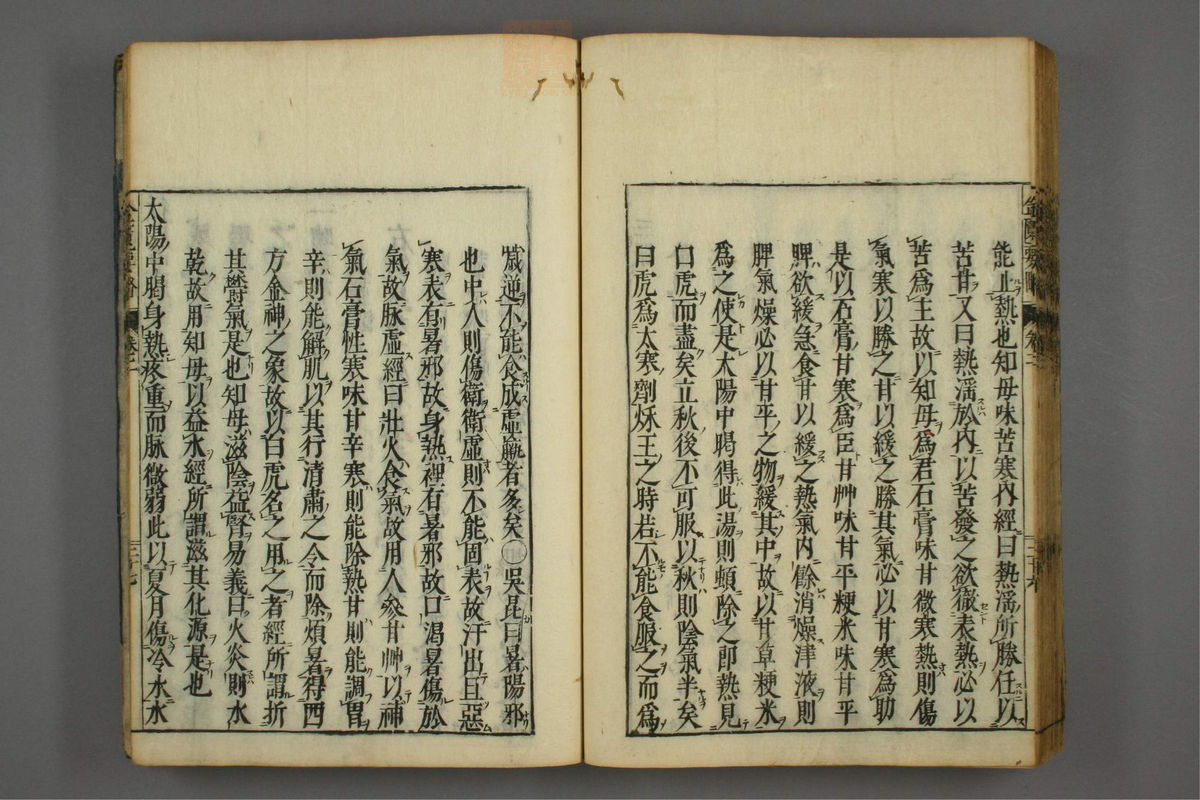 能止熱也知母味苦寒內經曰熱淫所勝佐以
苦甘又曰熱淫於內以苦發之欲徹表熱必以
苦爲主故以知母爲君石膏味甘微寒熱則傷
氣寒以勝之甘以緩之勝其氣必以甘寒爲助
是以石膏甘寒爲臣甘艸味甘平粳米味甘平
脾欲緩急食甘以緩之熱氣內餘消燥津液則
脾氣燥必以甘平之物緩其中故以甘草粳米
爲之使是太陽中暍得此湯則頓除之即熱見
白虎而盡矣立秋後不可服以秋則陰氣半矣
白虎爲大寒劑秋王之時若不能食服之而爲
噦逆不能食成虛羸者多矣 吳昆曰暑陽邪
也中人則傷衛衛虛則不能固表故汗出且惡
寒表有暑邪故身熱裡有暑邪故口渴暑傷於
氣故脉虛經曰壯火食氣故用人參甘艸以補
氣石膏性寒味甘辛寒則能除熱甘則能調胃
辛則能解肌以其行清肅之令而除煩暑得西
方金神之象故以白虎名之用之者經所謂折
其鬱氣是也知母滋陰益腎易義曰火炎則水
乾故用知母以益水經所謂滋其化源是也
太陽中暍身熱疼重而脉微弱此以夏月傷冷水水
金匱要略 卷二 二十七